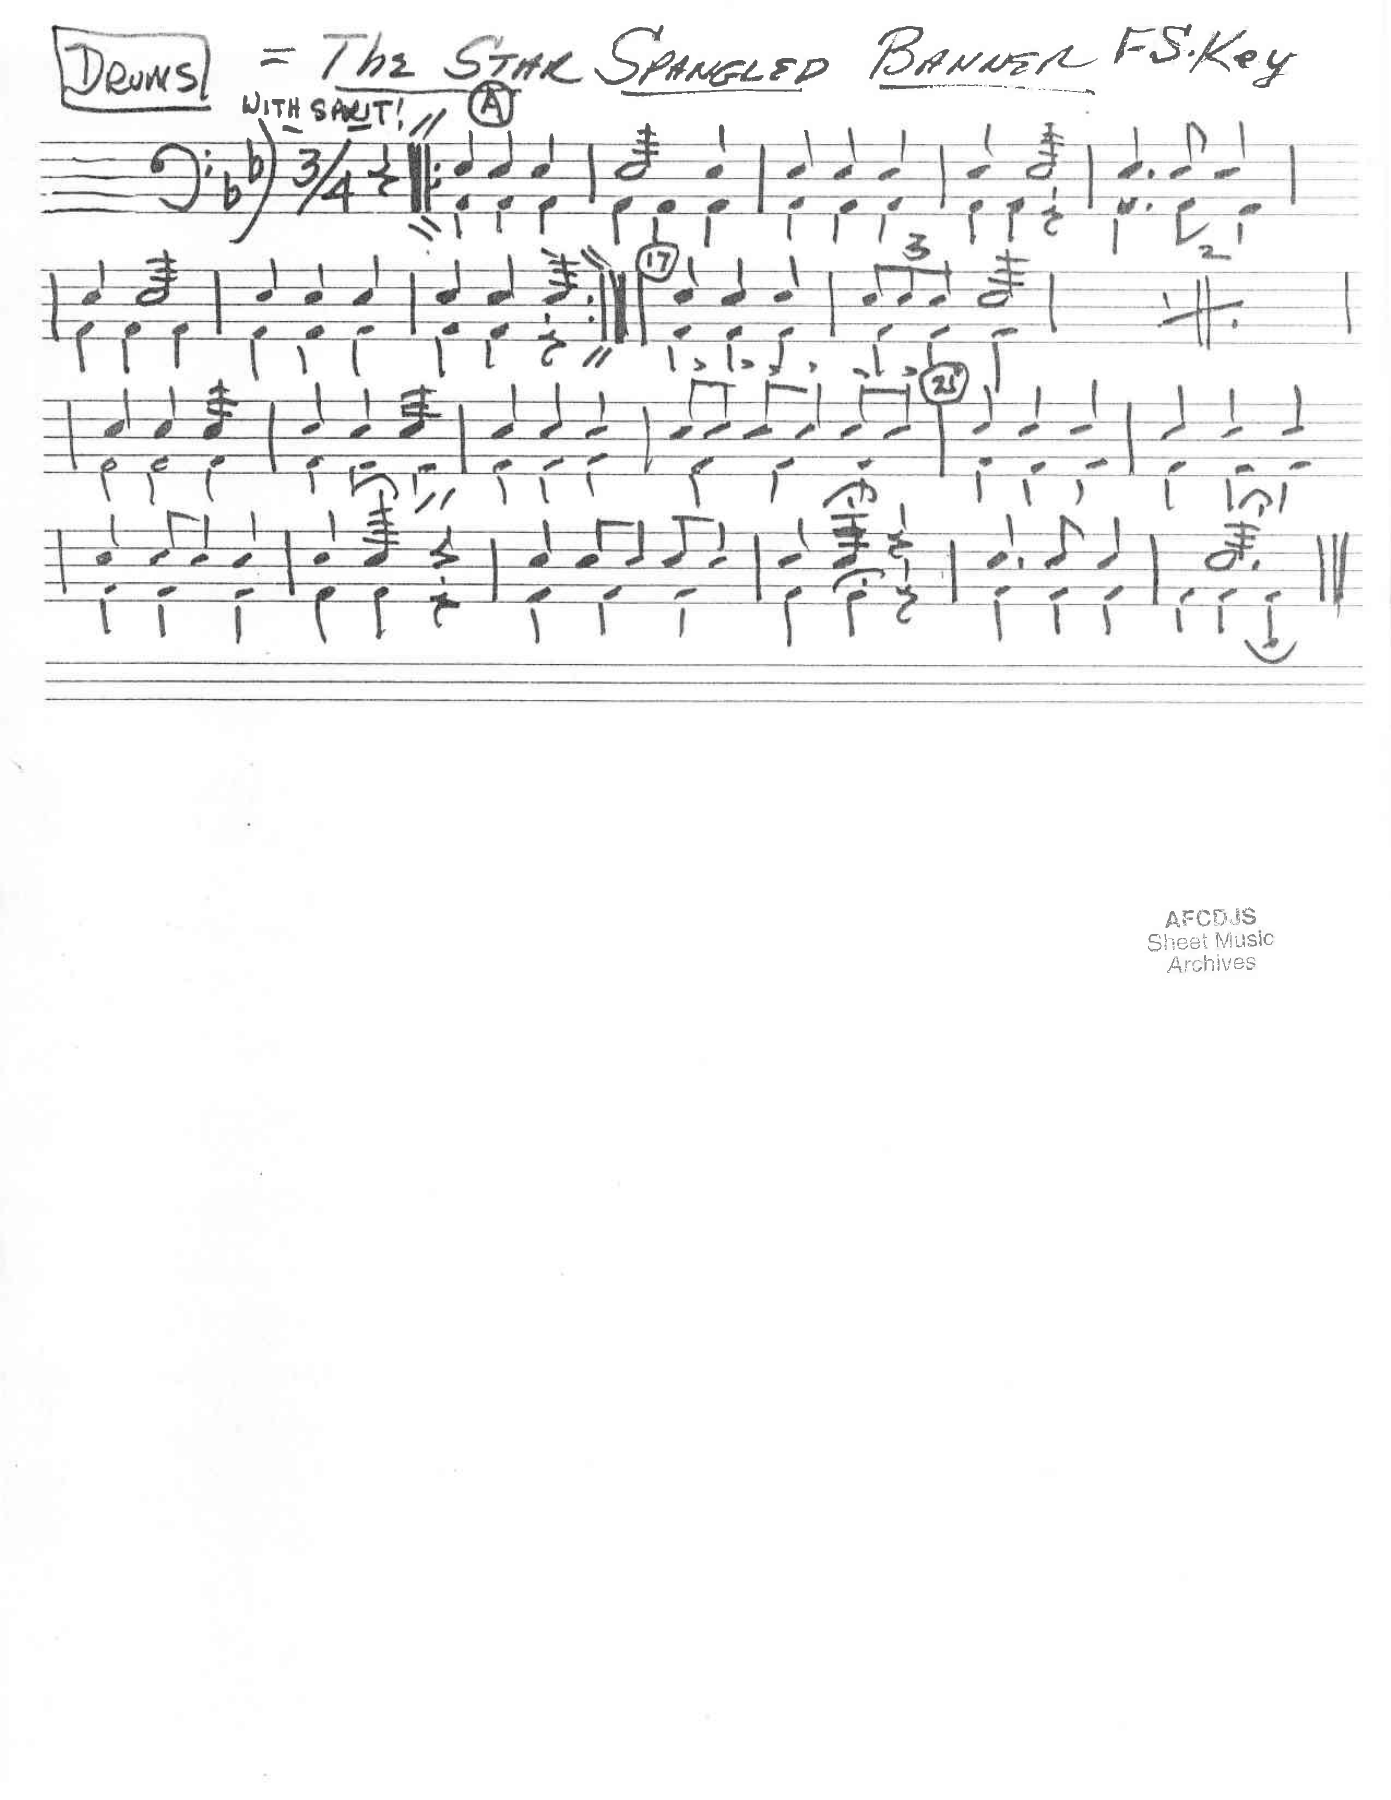 DRUMS = The STAR SPANGLED BANNER F.S. Key
WITH
A
3/4
3
2
17
25
AFCDJS
Sheet Music
Archives